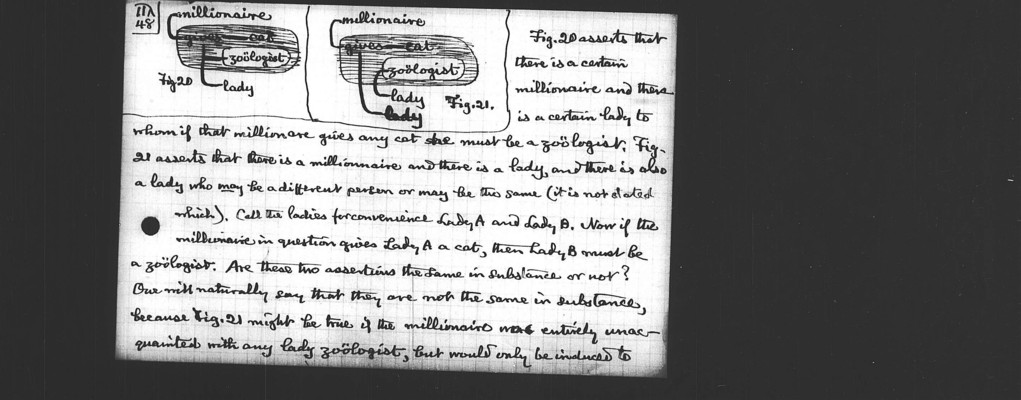 III
48
millionaire
gives cat
zoölogist
Fig. 20
lady
millionaire
gives cat
zoölogist
lady
Fig. 21.
lady
Fig. 20 asserts that
there is a certain
millionaire and there
is a certain lady to
whom if that millionare gives any cat she must be a zoölogist. Fig.
21 asserts that there is a millionnaire and there is a lady, and there is also
a lady who may be a different person or may be the same (it is not stated
which). Call the ladies for convenience Lady A and Lady B. Now if the
millionaire in question gives Lady A a cat, then Lady B must be
a zoölogist. Are these two assertions the same in substance or not?
One will naturally say that they are not the same in substance,
because Fig. 21 might be true if the millionaire were entirely unac-
quainted with any lady zoölogist, but would only be induced to